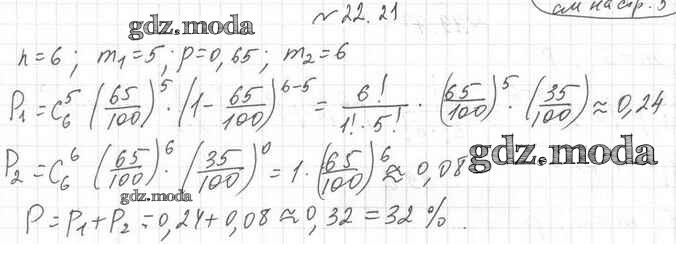 № 22.21
см на стр. 5
gdz.moda
n=6; m₁=5; p=0,65; m₂=6
P₁=C₆⁵ (65/100)⁵ · (1 - 65/100)⁶⁻⁵ = 6!/(1!·5!) · (65/100)⁵ · (35/100) ≈ 0,24
P₂=C₆⁶ (65/100)⁶ · (35/100)⁰ = 1·(65/100)⁶ ≈ 0,08
gdz.moda
gdz.moda
P=P₁+P₂=0,24+0,08≈0,32=32%.